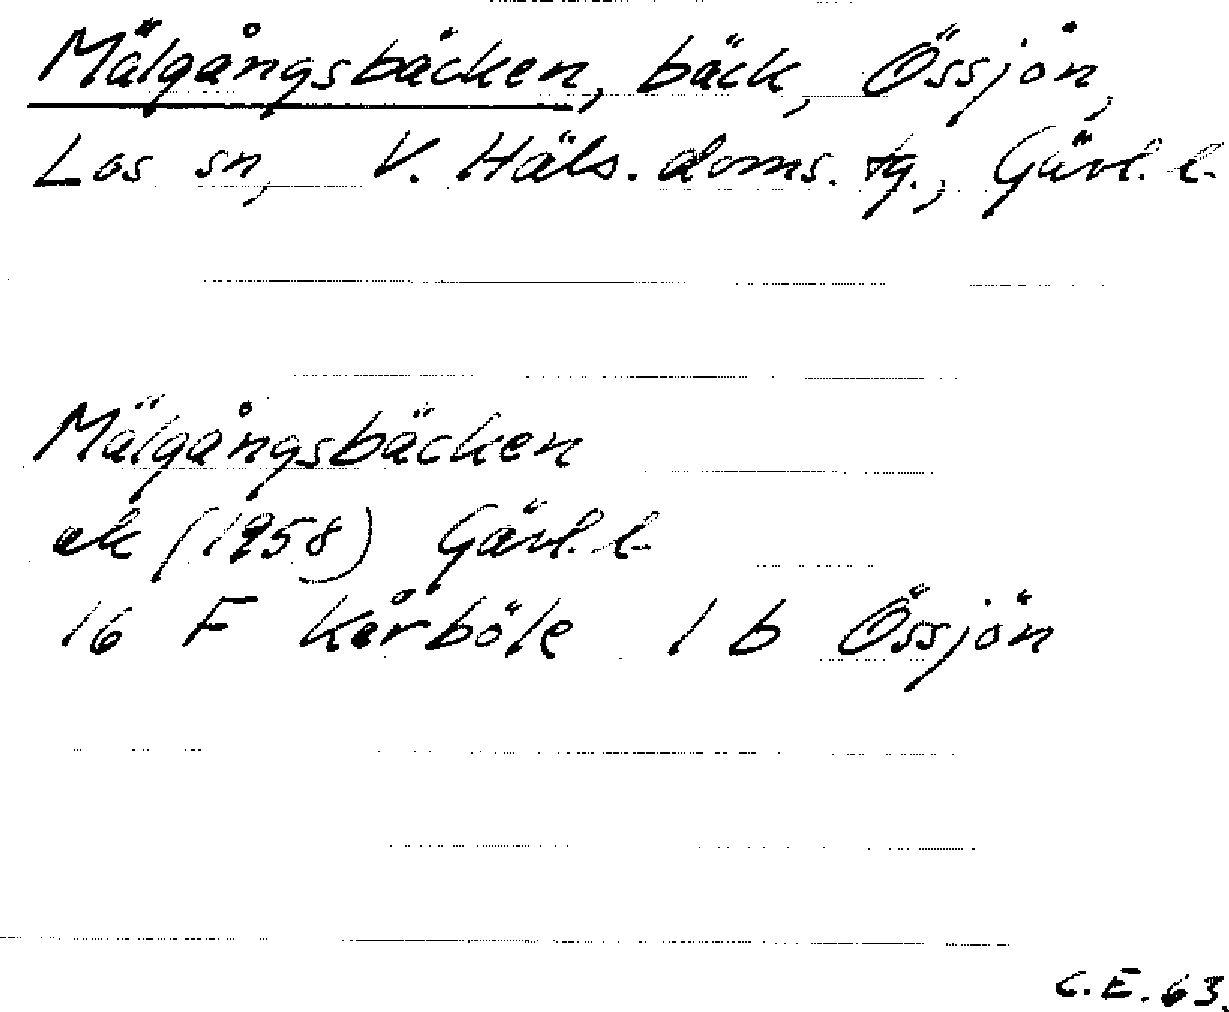 Mälgångsbäcken, bäck, Össjön,
Los sn, V. Häls. doms. tg., Gävl. l.
Mälgångsbäcken
ek (1958) Gävl. l.
16 F Kårböle 1 b Össjön
C.E. 63.